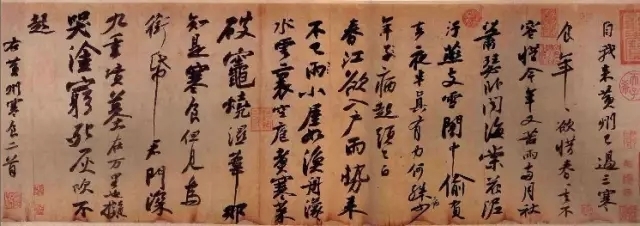 自我来黃州已過三寒
食年〻欲惜春〻去不
容惜今年又苦雨兩月秋
蕭瑟卧聞海棠花泥
汙燕支雪闇中偷負
去夜半真有力何殊少
年子病起須已白
春江欲入戶雨勢来
不已雨小屋如漁舟濛〻
水雲裏空庖煮寒菜
破竈燒濕葦那
知是寒食但見烏
銜帋君門深
九重墳墓在万里也擬
哭塗窮死灰吹不
起
右黃州寒食二首